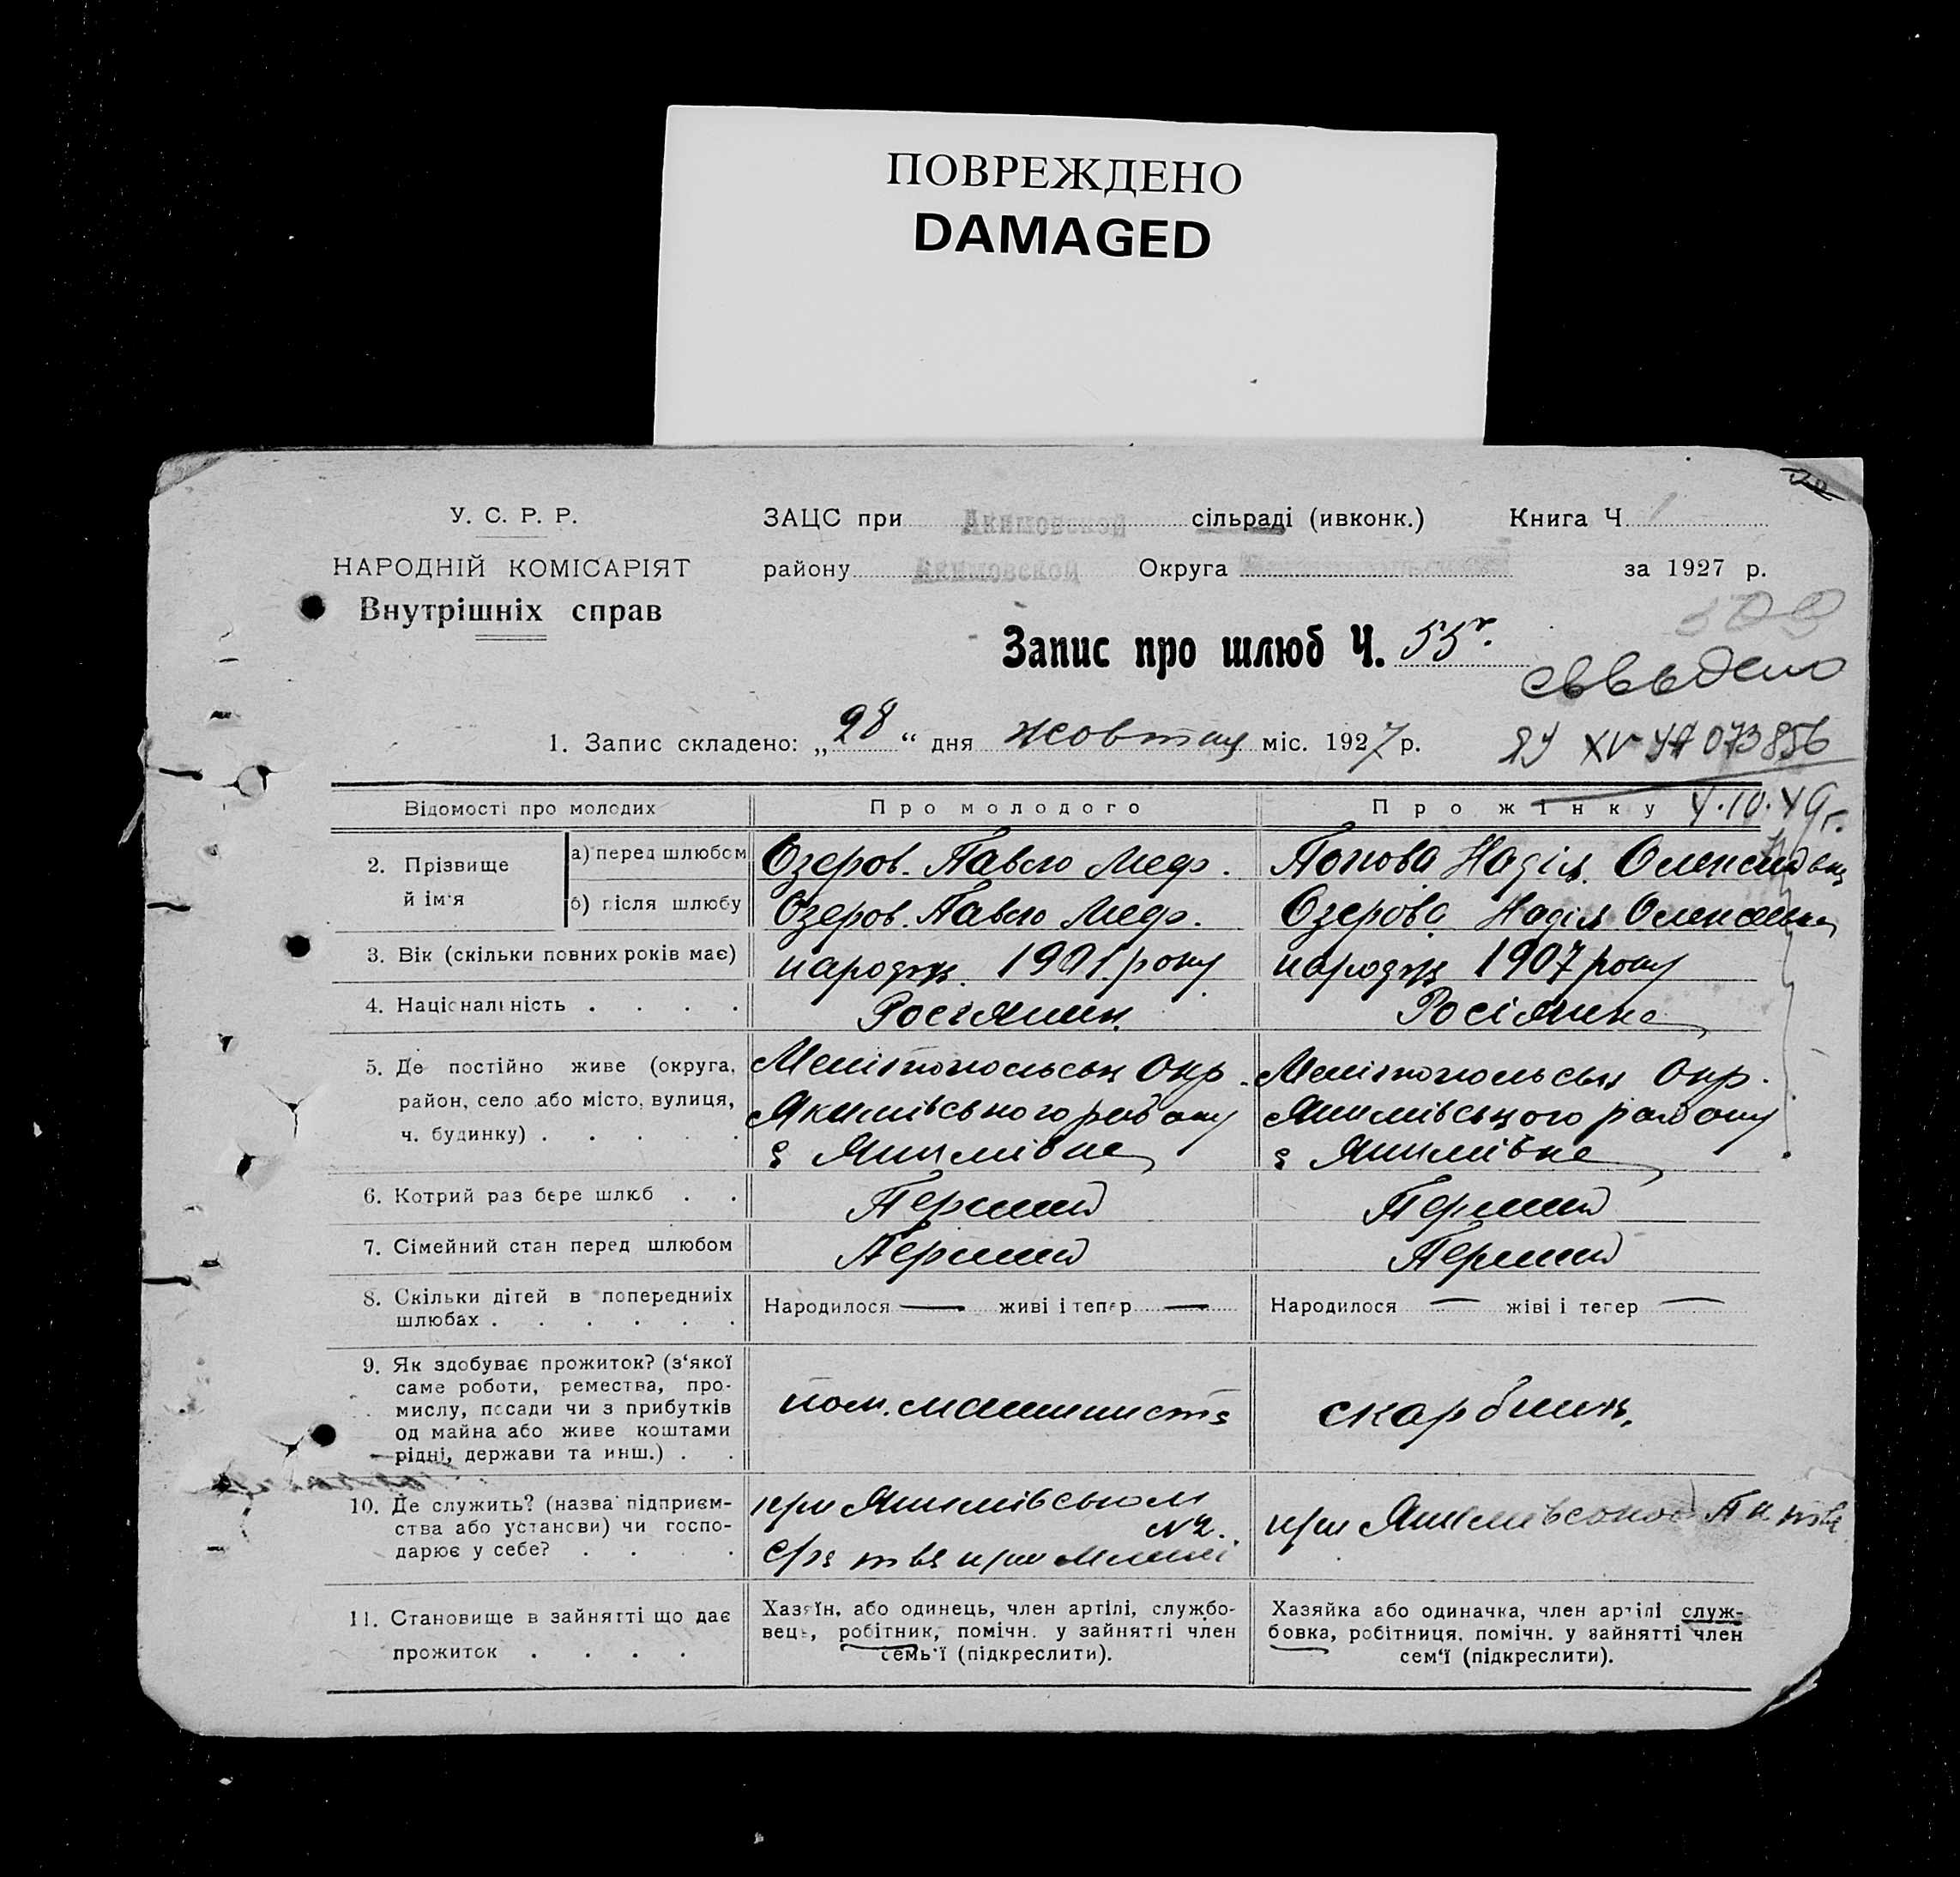 ПОВРЕЖДЕНО
DAMAGED
У. С. Р. Р.
НАРОДНІЙ КОМІСАРІЯТ
Внутрішніх справ
ЗАЦС при Акимовской сільраді (ивконк.) Книга Ч 1
району Акимовской Округа за 1927 р.
Запис про шлюб Ч. 55
1. Запис складено: „28“ дня жовтня міс. 1927 р.
XV 073856
4.10.49 г.
Відомості про молодих
Про молодого
Про жінку
2. Прізвище й ім'я
а) перед шлюбом Озеров. Павло Меф. Попова Надія
б) після шлюбу Озеров. Павло Меф. Озерова Надія
3. Вік (скільки повних років має) народж. 1901 року народж 1907 року
4. Національність . . . . Росіянин Росіянка
5. Де постійно живе (округа,
район, село або місто, вулиця,
ч. будинку) . . . . .
Мелітопольськ Окр.
Якимівського району
с Якимівка
Мелітопольськ Окр.
Якимівського району
с Якимівка
6. Котрий раз бере шлюб . . Перший Перший
7. Сімейний стан перед шлюбом Перший Перший
8. Скільки дітей в попередниіх
шлюбах . . . . . .
Народилося — живі і тепер —
Народилося — жіві і тепер —
9. Як здобуває прожиток? (з'якої
саме роботи, ремества, про-
мислу, посади чи з прибутків
од майна або живе коштами
рідні, держави та инш.) . .
пом. машиниста
скарбник.
10. Де служить? (назва підприєм-
ства або установи) чи госпо-
дарює у себе? . . . .
при Якимівськом
с/г тва при млині №2.
при Якимівською
11. Становище в зайнятті що дає
прожиток . . . .
Хазяїн, або одинець, член артілі, службо-
вець, робітник, помічн. у зайнятті член
семь'ї (підкреслити).
Хазяйка або одиначка, член артілі служ-
бовка, робітниця, помічн. у зайнятті член
сем'ї (підкреслити).